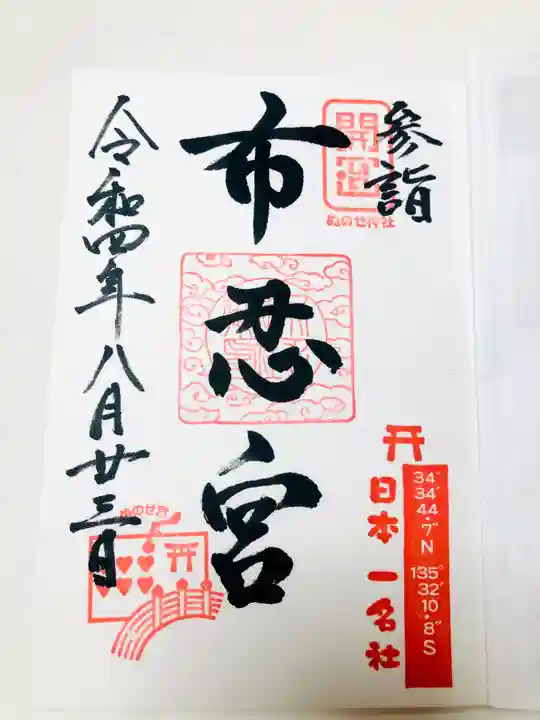 参詣
開運
ぬのせ神社
布忍宮
令和四年八月廿三日
ぬのせ宮
日本一名社
34°
34′
44.7″N
135°
32′
10.8″S